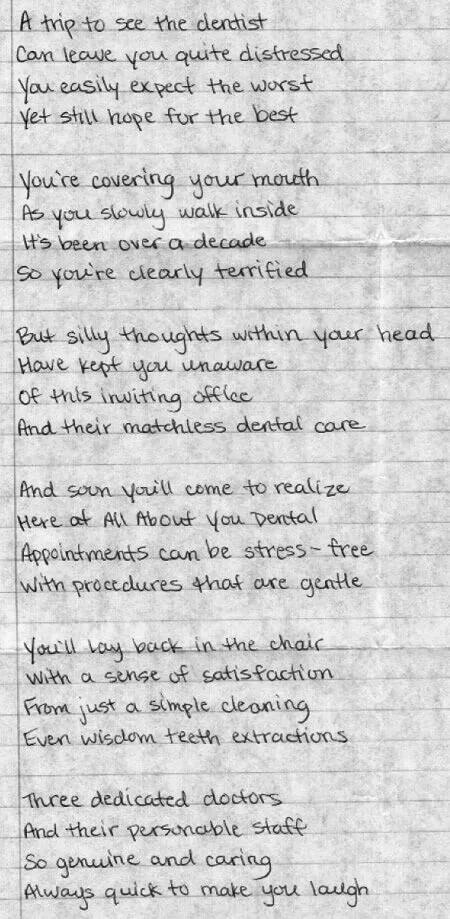 A trip to see the dentist
Can leave you quite distressed
You easily expect the worst
Yet still hope for the best
You're covering your mouth
As you slowly walk inside
It's been over a decade
So you're clearly terrified
But silly thoughts within your head
Have kept you unaware
Of this inviting office
And their matchless dental care
And soon you'll come to realize
Here at All About You Dental
Appointments can be stress-free
With procedures that are gentle
You'll lay back in the chair
With a sense of satisfaction
From just a simple cleaning
Even wisdom teeth extractions
Three dedicated doctors
And their personable staff
So genuine and caring
Always quick to make you laugh